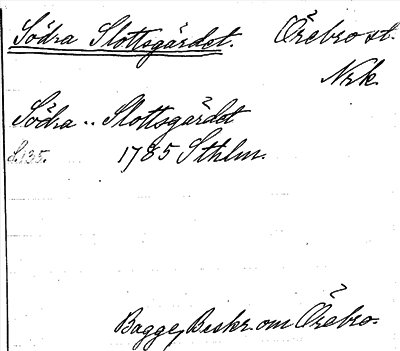 Södra Slottsgärdet. Örebro st.
Nrk.
Södra .. Slottsgärdet
S.135. 1785 Sthlm.
Bagge, Beskr. om Örebro.